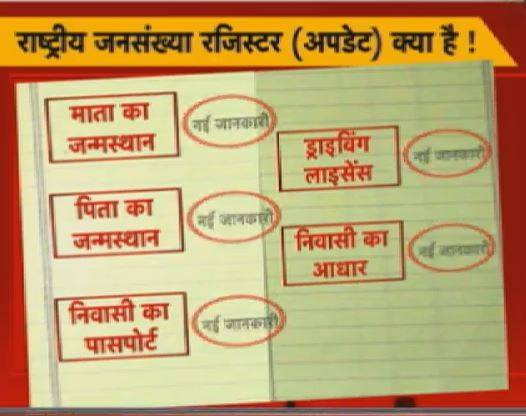 राष्ट्रीय जनसंख्या रजिस्टर (अपडेट) क्या है !
माता का
जन्मस्थान
नई जानकारी
पिता का
जन्मस्थान
नई जानकारी
निवासी का
पासपोर्ट
नई जानकारी
ड्राइविंग
लाइसेंस
नई जानकारी
निवासी का
आधार
नई जानकारी